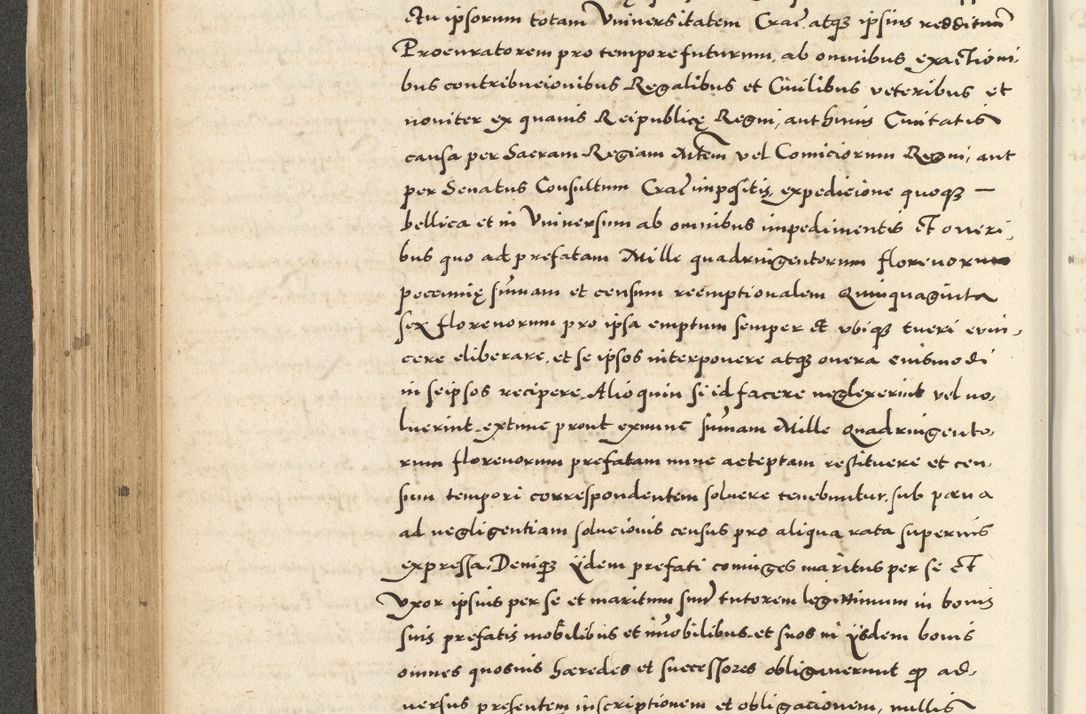 ctu ipsorum totam Universitatem Crac̃ atq3 ipsius reddituũ
Procuratorem pro tempore futurum, ab omnibus exactioni,
bus contribucionibus Regalibus et Civilibus veteribus et
noviter ex quavis Reipublicę Regni, aut huius Civitatis
causa per Sacram Regiam Mtem vel Comiciorum Regni, aut
per Senatus Consultum Crac̃ impositis, expedicione quoq3 —
bellica et in Universum ab omnibus impedimentis et oneri,
bus quo ad prefatam Mille quadringentorum florenorum
pecunię sum̃am et censum reemptionalem Quinquaginta
sex florenorum pro ipsa emptum semper et ubiq3 tueri evin,
cere eliberare, et se ipsos interponere atq3 onera eiusmodi
in seipsos recipere. Alioquin si id facere neglexerint vel no,
luerint, extunc prout exnunc sum̃am Mille Quadringento,
rum florenorum prefatam nunc acceptam restituere et cen,
sum tempori correspondentem solvere tenebuntur, sub pæna
ad negligentiam solucionis census pro aliqua rata superius
expressa. Deniq3 ijdem prefati coniuges maritus per se et
Uxor ipsius per se et maritum suũ tutorem legittimum in bonis
suis prefatis mobilibus et im̃obilibus et suos in ijsdem bonis
omnes quosvis hæredes et successores obligaverunt ꝙ ad,
versus presentem inscriptionem et obligacionem, nullis